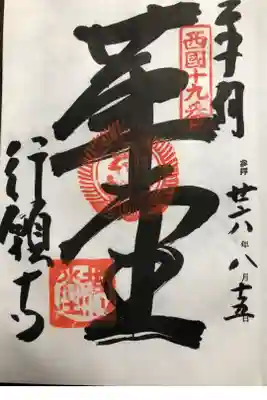 奉拝
西國十九番
参拝 廿六年八月十五日
革堂
行願寺